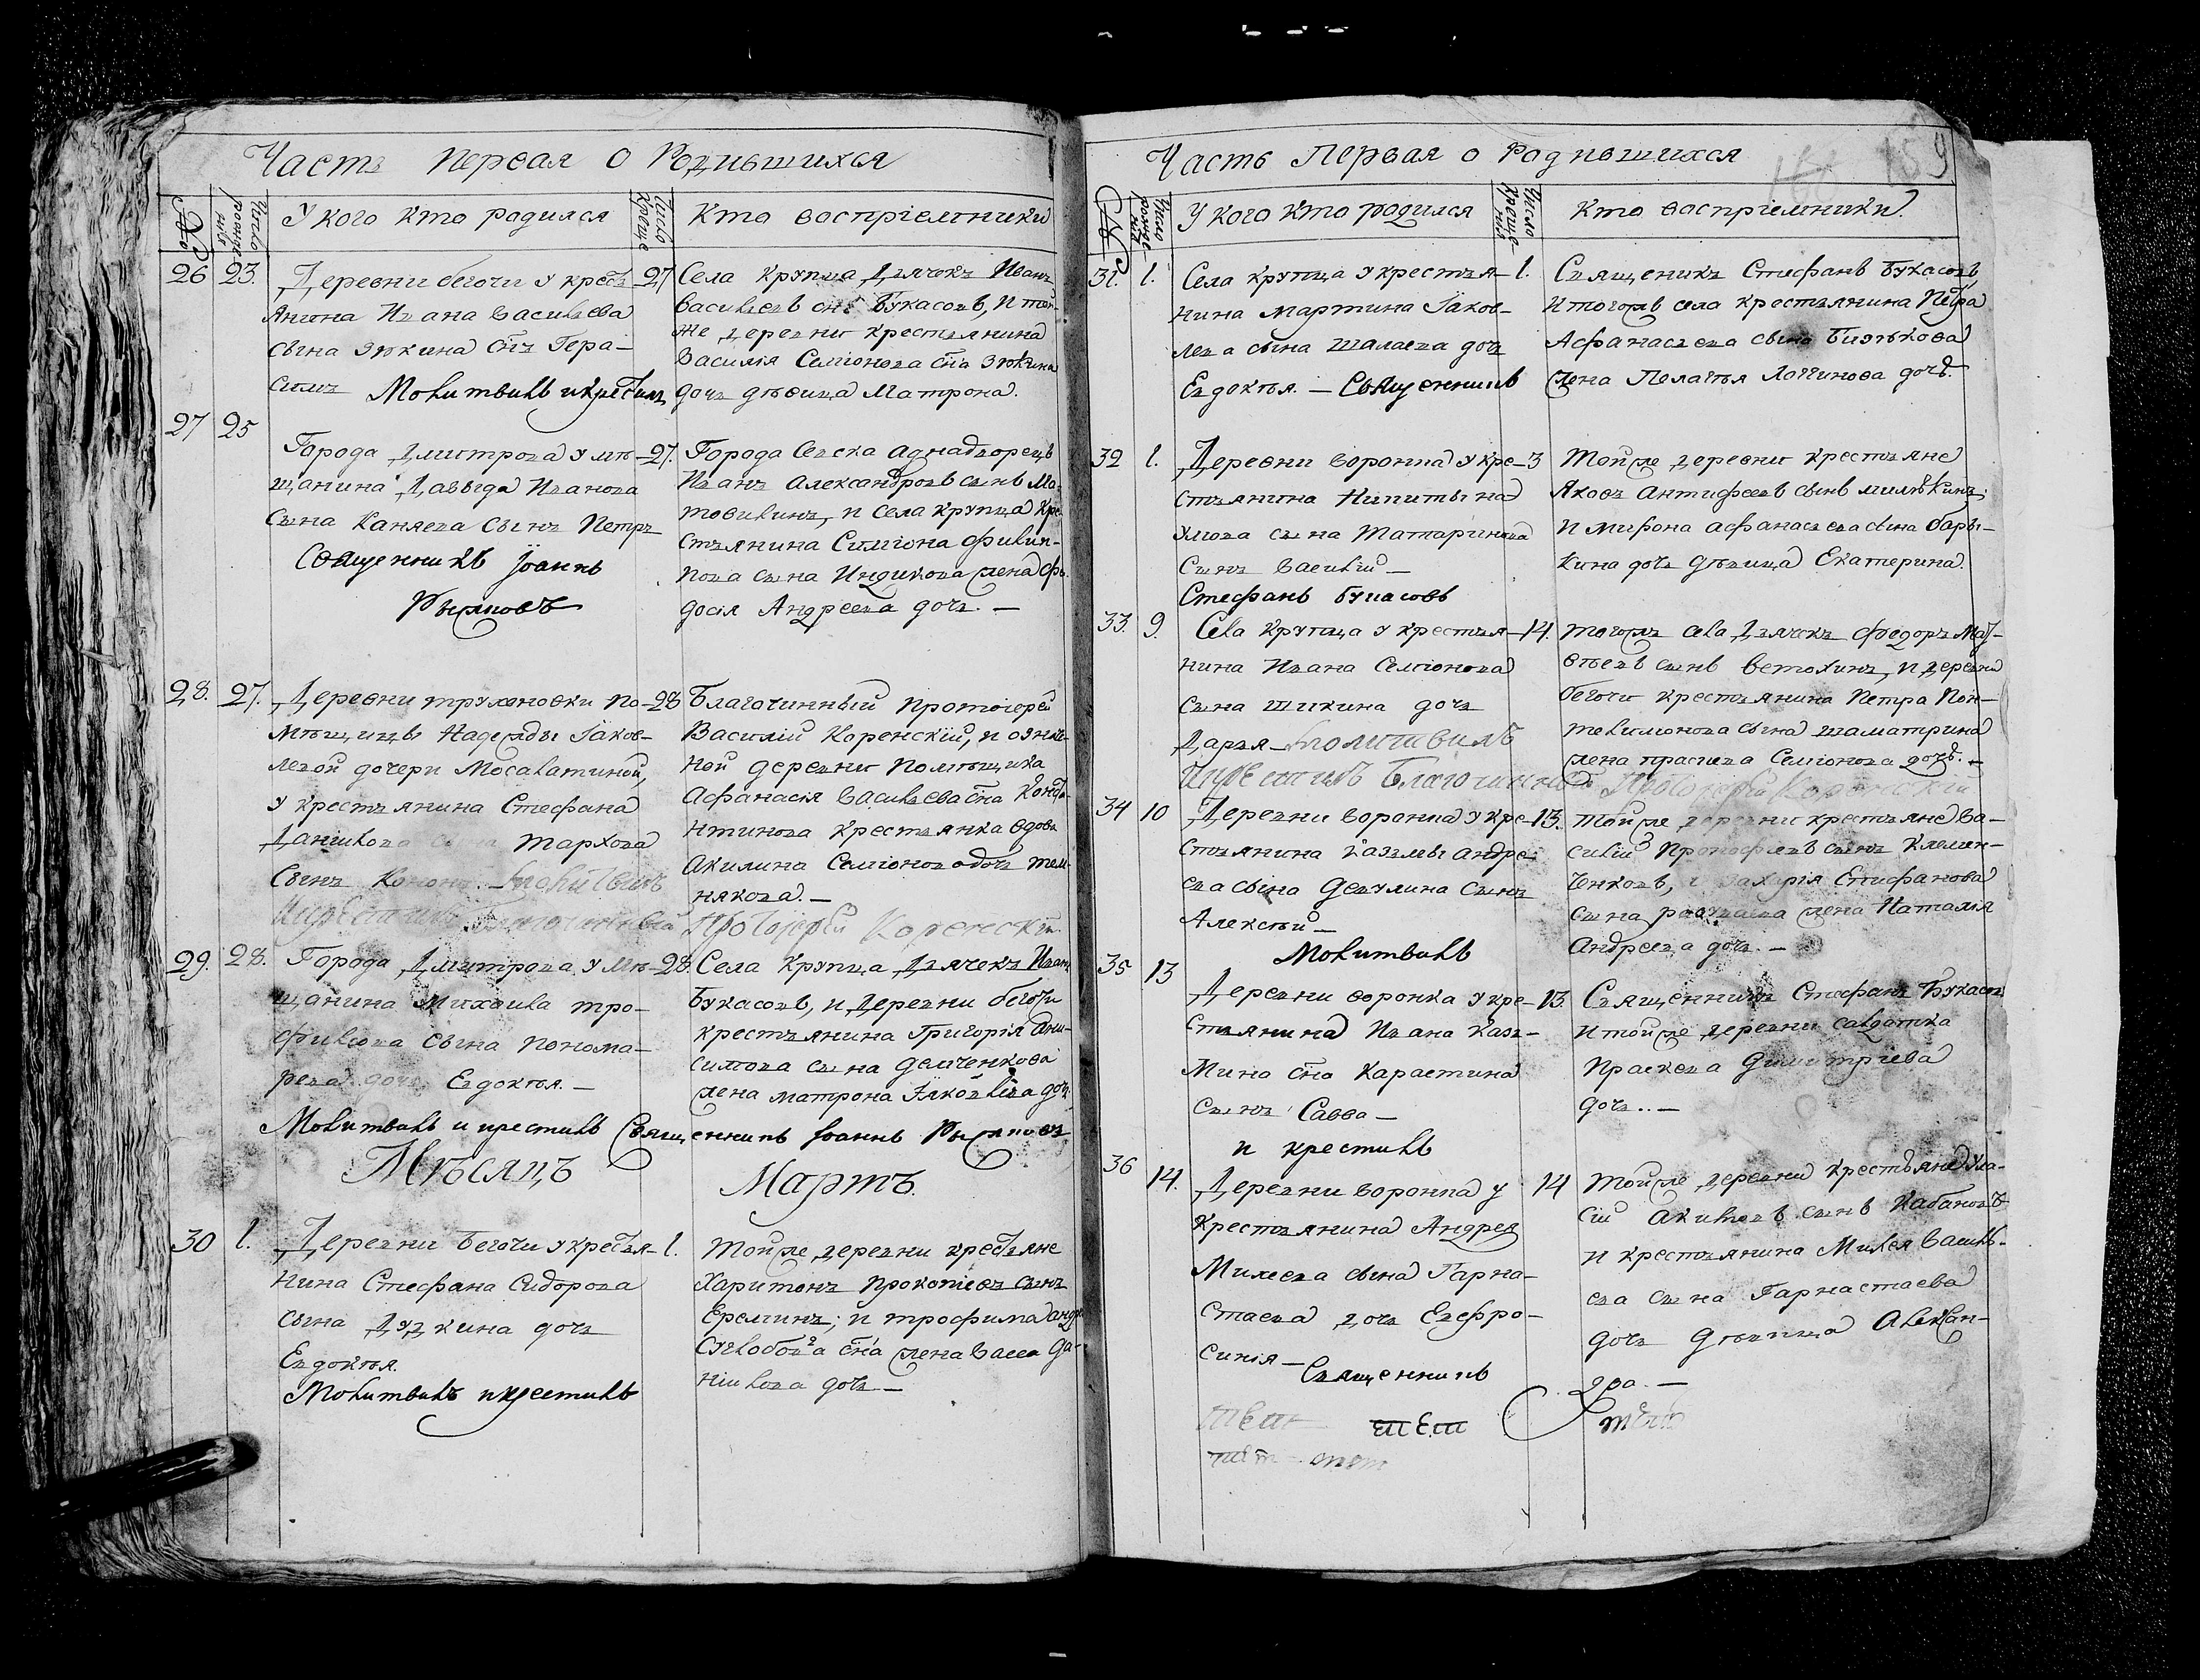 Часть первая о Родившихся
№
Число рожде ния
У кого кто родился
Число Креще
Кто восприемники
26 23. Деревни бегочи у крестъ- 27
Янина Ивана Васильева
сына Зюкина снъ Гера-
симъ Молитвилъ и крестилъ
Села крупца Дьячекъ Иванъ
Васильевъ снъ Букасовъ, и той
же деревни крестьянина
Василия Семіонова сна Зюкина
дочь девица Матрона.
27 25
Города Дмитрова у мѣ- 27.
щанина Давыда Иванова
сына Каняева Сынъ Петръ
Священникъ Іоаннъ
Рыжковъ
Города Севска аднадворецъ
Иванъ Александровъ сынъ Ма-
товилинъ, и села крупца Кре
стьянина Симіона Филип-
пова сына Индикова жена Фе
досія Андреева дочь. —
28. 27. Деревни трухановки По- 28
мѣщицы Надежды Іаков-
левой дочери Мосалитиной,
у крестьянина Стефана
Данилова сына Тархова
Сынъ Кононъ. Молитвилъ
и крестилъ Благочинный Протоіерей Коренскій
Благочинный протоіерей
Василій Коренскій, и означе-
ной деревни Помѣщика
Афанасія Васильева сна Конста-
нтинова крестьянка вдова
Акилина Семіонова дочь тем-
някова. —
29. 28. Города Дмитрова у мѣ- 28.
щанина Михаила тро-
фимова сына понома-
рева дочь Евдокія. —
Села крупца Дьячекъ Иванъ
Букасовъ, и Деревни бегочи
крестьянина Григорія Они-
симова сына демченкова
жена матрона Іяковлева дочь
Молитвилъ и крестилъ Священникъ Іоаннъ Рыжковъ
Мѣсяцъ Мартъ.
30 1. Деревни Бегочи у крестья- 1.
нина Стефана Сидорова
сына Дудкина дочь
Евдокія.
Молитвилъ и крестилъ
Тойже деревни крестьяне
Харитонъ прокопіевъ сынъ
Ереминъ; и трофима андре
Слободова сна жена Васса Да-
нилова дочь —
Часть Первая о Родившихся
159
№
Число рожде ния
У кого кто родился
Число Креще ния
Кто восприемники.
31. 1. Села крупца у крестья- 1.
нина мартина Іаков-
лева сына шалаева дочь
Евдокія. — Священникъ
Священикъ Стефанъ Букасовъ,
и тогожъ села крестьянина Петра
Афанасьева сына Бизюкова
жена Пелагія Логинова дочь.
32 1. Деревни воронка у кре- 3
стьянина Никиты на
умова сына Татаринова
Сынъ Василій —
Стефанъ Букасовъ
Тойже деревни крестьяне
Яковъ антифеевъ сынъ милѣкинъ;
и мирона афанасьева сына бары-
кина дочь дѣвица Екатерина.
33. 9. Села крупца у крестья- 14.
нина Ивана Семіонова
сына шикина дочь
Дарья — Молитвилъ
и крестилъ Благочинный Протоіерей Коренскій
тогожъ села Дьячекъ Федоръ Мат-
веевъ сынъ ветохинъ, и деревни
бегочи крестьянина Петра Пон-
телимонова сына шаматрина
жена прасковa Семіонова дочь. —
34 10 Деревни воронка у кре- 13.
стьянина Каземы андре
ева сына девулина сынъ
Алексѣй —
Молитвилъ
Тойже деревни крестьяне Ва-
силій Прокофьевъ сынъ Клемен-
ченковъ, и захарія Епифанова
сына жена Наталія
Андреева дочь. —
35 13 Деревни воронка у кре- 13.
стьянина Ивана Казь-
мина сна Карастина
сынъ Савва —
и крестилъ
Священникъ Стефанъ Букасовъ
и тойже деревни салдатка
Прасковa Димитріева
дочь.. —
36 14. Деревни воронка у 14
Крестьянина Андрея
Михеева сына Гарна-
стаева дочь Евфро-
синія — Священникъ
Тойже деревни крестьяне Ула-
сій Акимовъ сынъ Кабановъ
и крестьянина Михея Василь-
ева сына Гарнастаева
дочь Дѣвица Алексан-
дра. —